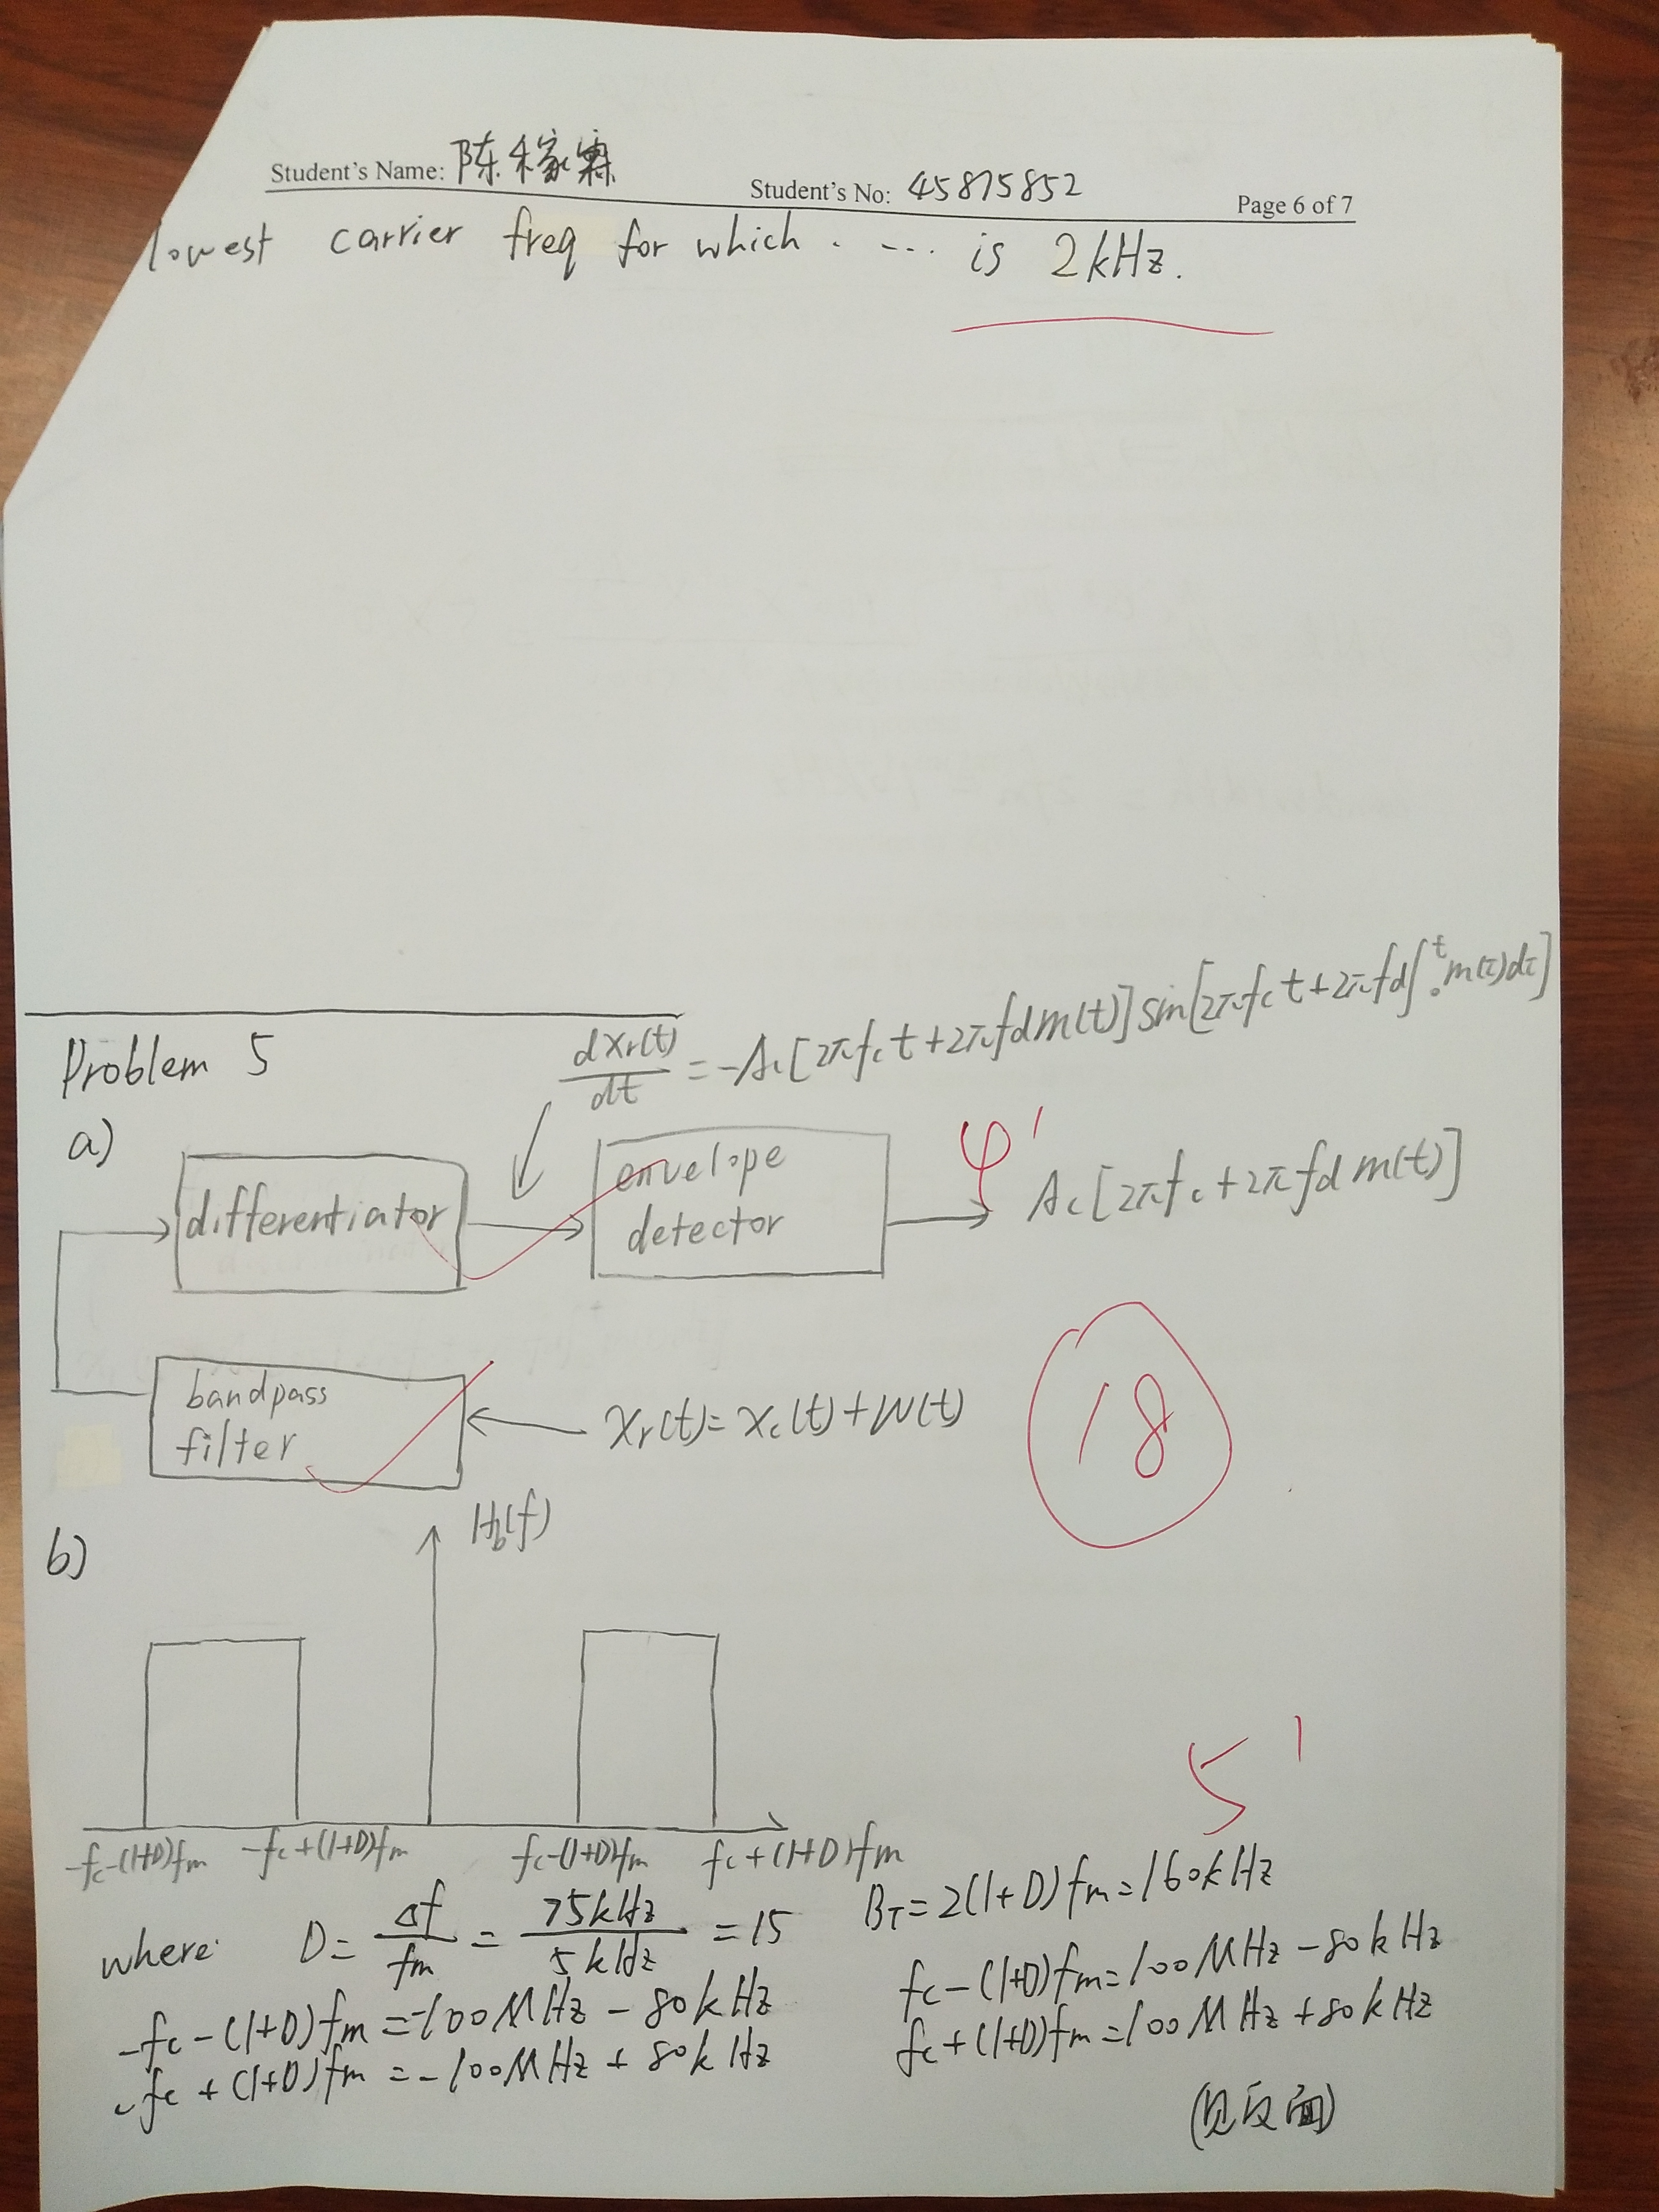 Student's Name: 陈稼霖 Student's No: 45875852 Page 6 of 7
lowest carrier freq for which . --- is 2kHz.
Problem 5
dXr(t)/dt = -Ac[2πfct+2πfdm(t)]sin[2πfct+2πfd∫₀ᵗm(τ)dτ]
a)
differentiator
envelope detector
φ'
Ac[2πfc+2πfdm(t)]
bandpass filter
Xr(t)=Xc(t)+W(t)
18
b)
Hb(f)
5'
-fc-(1+D)fm -fc+(1+D)fm fc-(1+D)fm fc+(1+D)fm
where: D=Δf/fm=75kHz/5kHz=15 BT=2(1+D)fm=160kHz
fc-(1+D)fm=100MHz-80kHz
-fc-(1+D)fm=-100MHz-80kHz
fc+(1+D)fm=100MHz+80kHz
-fc+(1+D)fm=-100MHz+80kHz
(见反面)